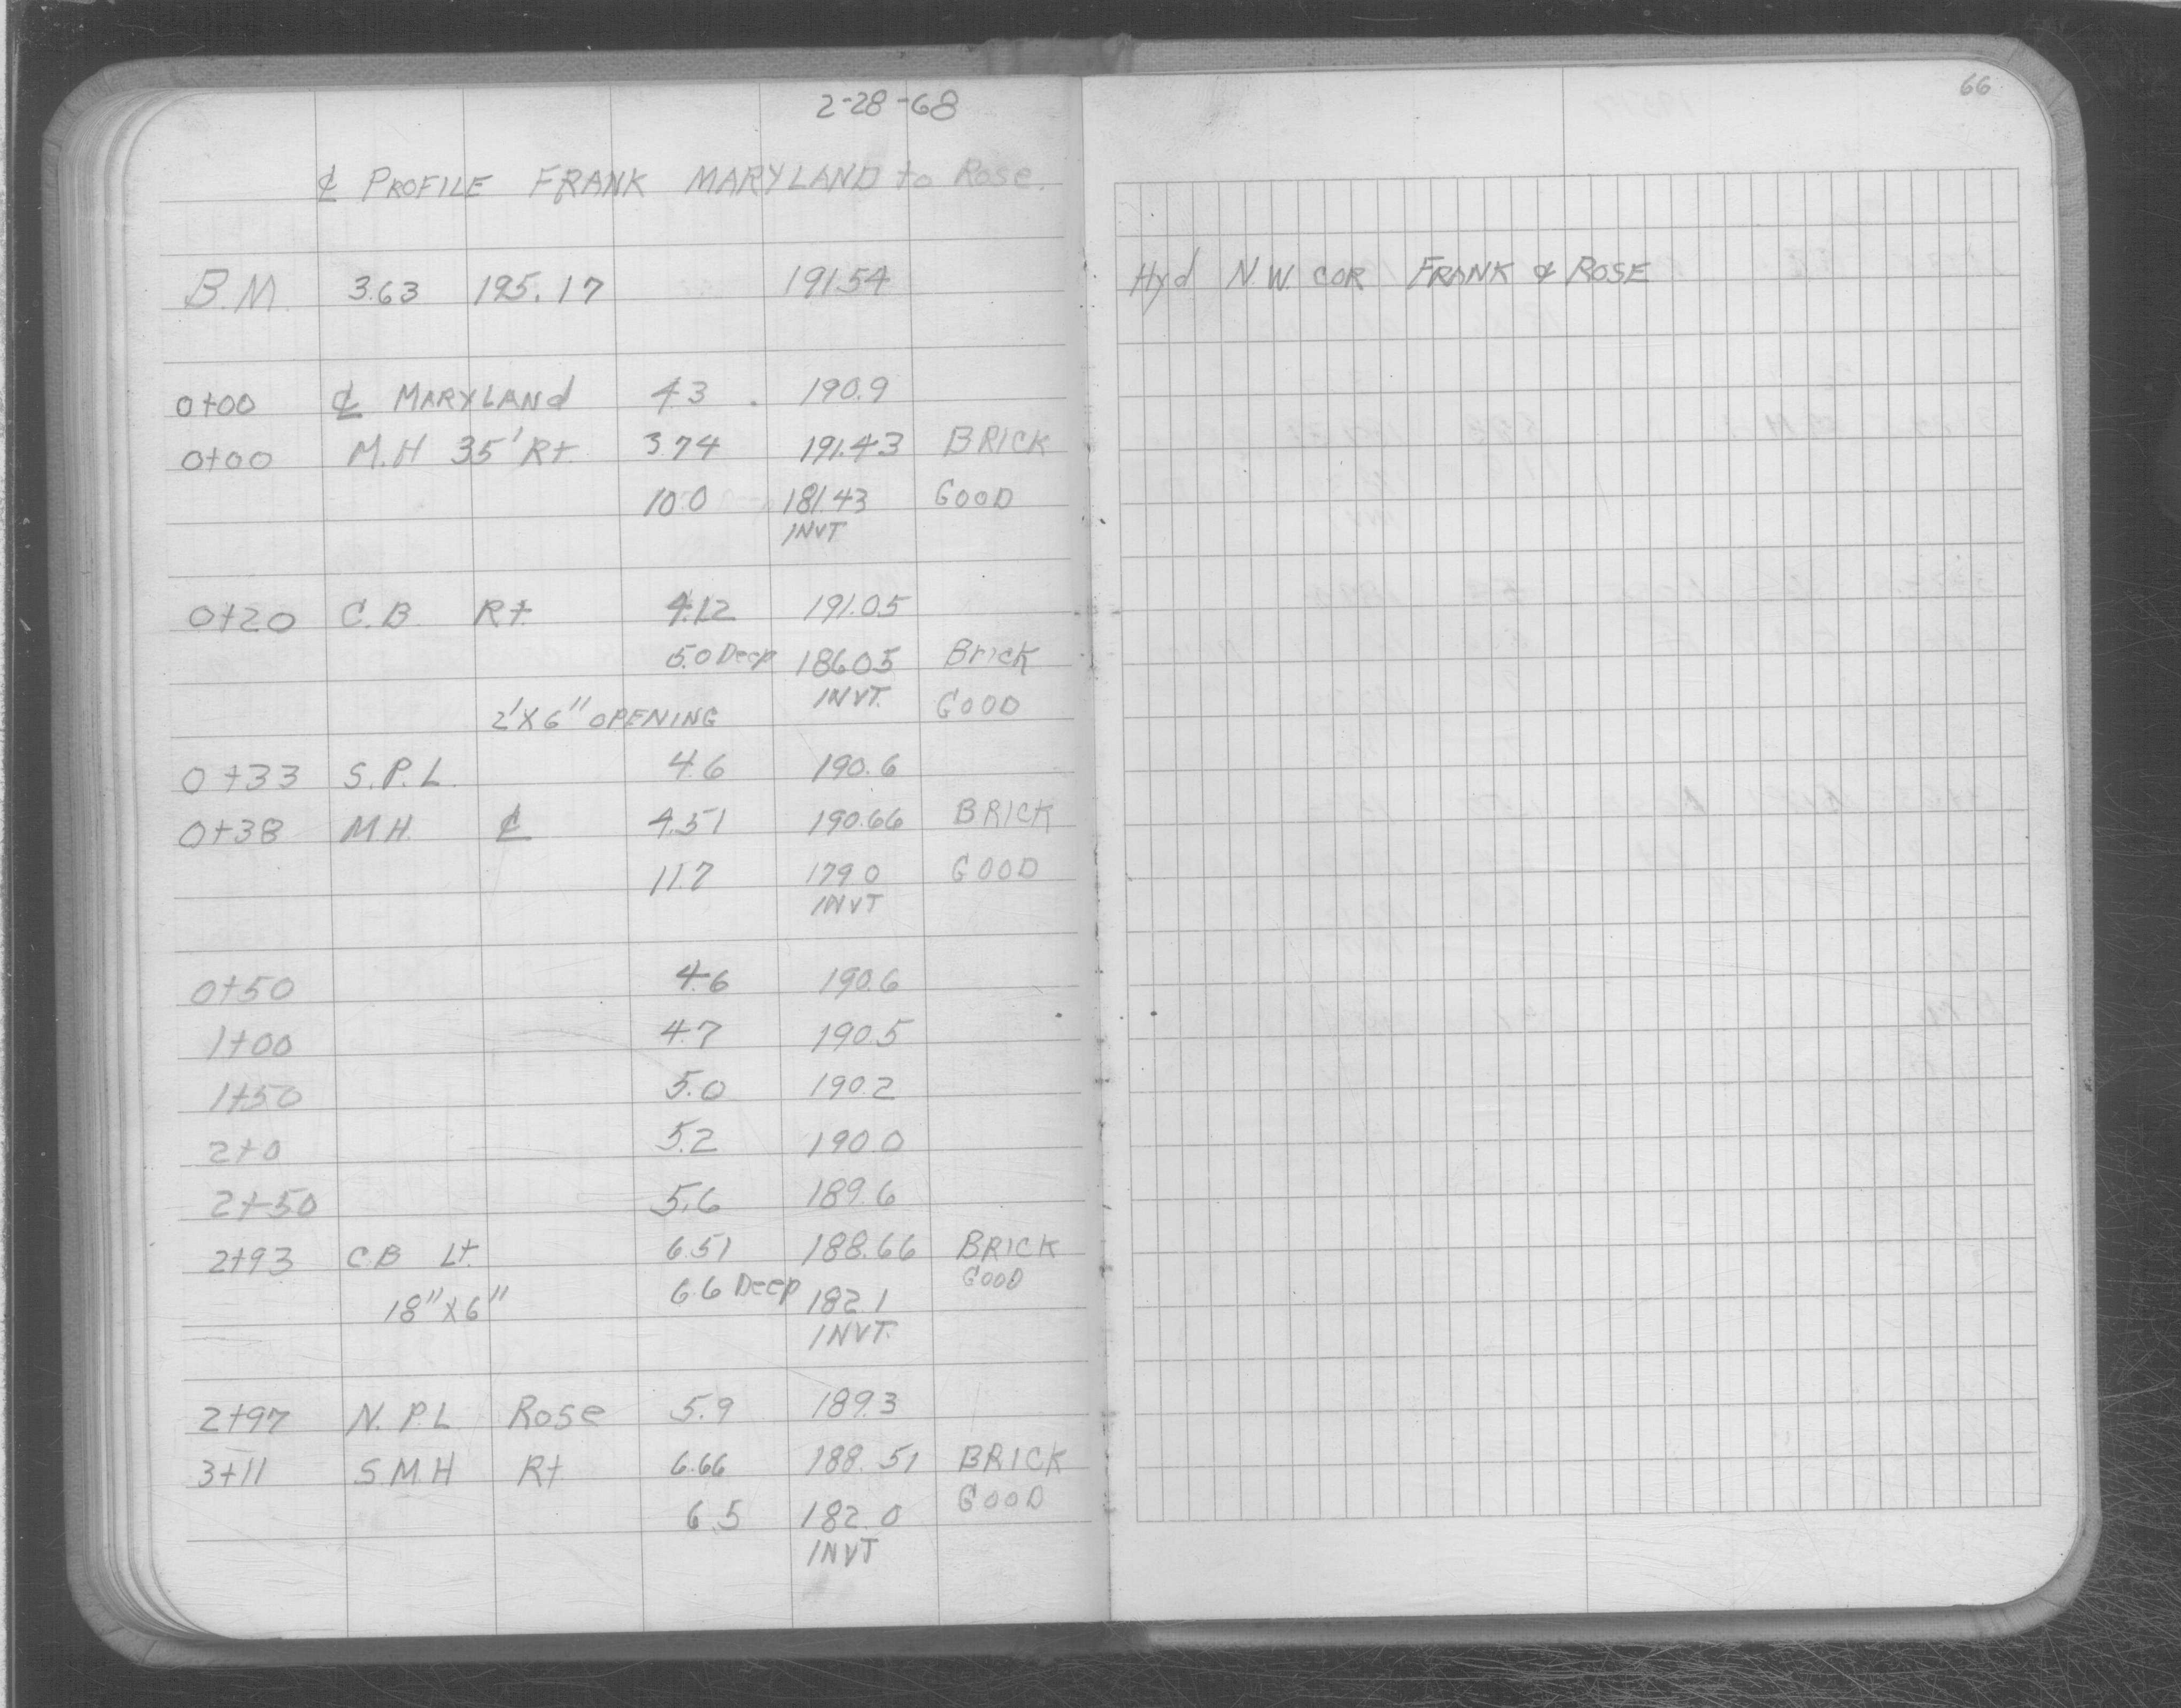 2-28-68
℄ PROFILE FRANK MARYLAND to Rose.
B.M. 3.63 195.17 191.54
0+00 ℄ MARYLANd 4.3 190.9
0+00 M.H 35' Rt. 3.74 191.43 BRICK
10.0 181.43 GOOD
INVT
0+20 C.B. Rt 4.12 191.05
5.0 Deep 186.05 Brick
INVT. GOOD
2'X6" OPENING
0+33 S.P.L. 4.6 190.6
0+38 M.H. ℄ 4.51 190.66 BRICK
11.7 179.0 GOOD
INVT
0+50 4.6 190.6
1+00 4.7 190.5
1+50 5.0 190.2
2+0 5.2 190.0
2+50 5.6 189.6
2+93 C.B Lt. 6.51 188.66 BRICK
GOOD
18"X6" 6.6 Deep 182.1
INVT.
2+97 N.P.L Rose 5.9 189.3
3+11 S.M.H Rt 6.66 188.51 BRICK
6.5 182.0 GOOD
INVT
66
Hyd N.W. COR FRANK & ROSE